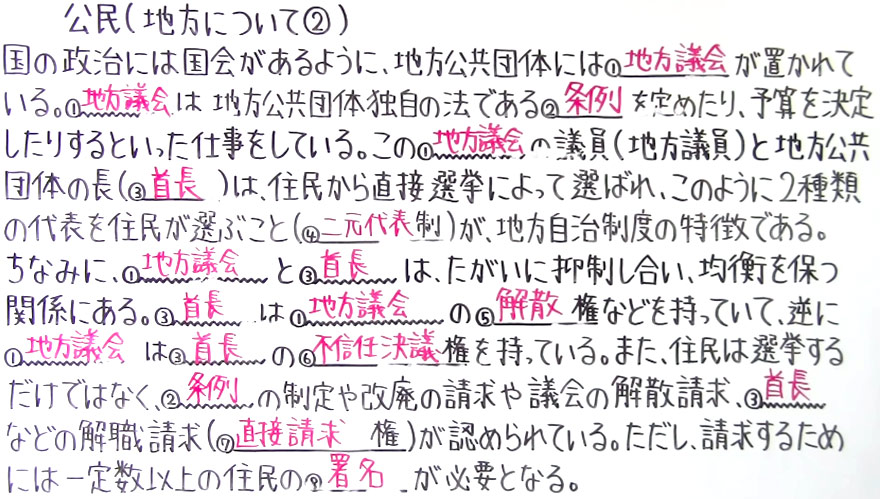 公民(地方について②)
国の政治には国会があるように、地方公共団体には①地方議会が置かれて
いる。①地方議会は地方公共団体独自の法である②条例を定めたり、予算を決定
したりするといった仕事をしている。この①地方議会の議員(地方議員)と地方公共
団体の長(③首長)は、住民から直接選挙によって選ばれ、このように2種類
の代表を住民が選ぶこと(④二元代表制)が、地方自治制度の特徴である。
ちなみに、①地方議会と③首長は、たがいに抑制し合い、均衡を保つ
関係にある。③首長は①地方議会の⑤解散権などを持っていて、逆に
①地方議会は③首長の⑥不信任決議権を持っている。また、住民は選挙する
だけではなく、②条例の制定や改廃の請求や議会の解散請求、③首長
などの解職請求(⑦直接請求権)が認められている。ただし、請求するため
には一定数以上の住民の⑧署名が必要となる。